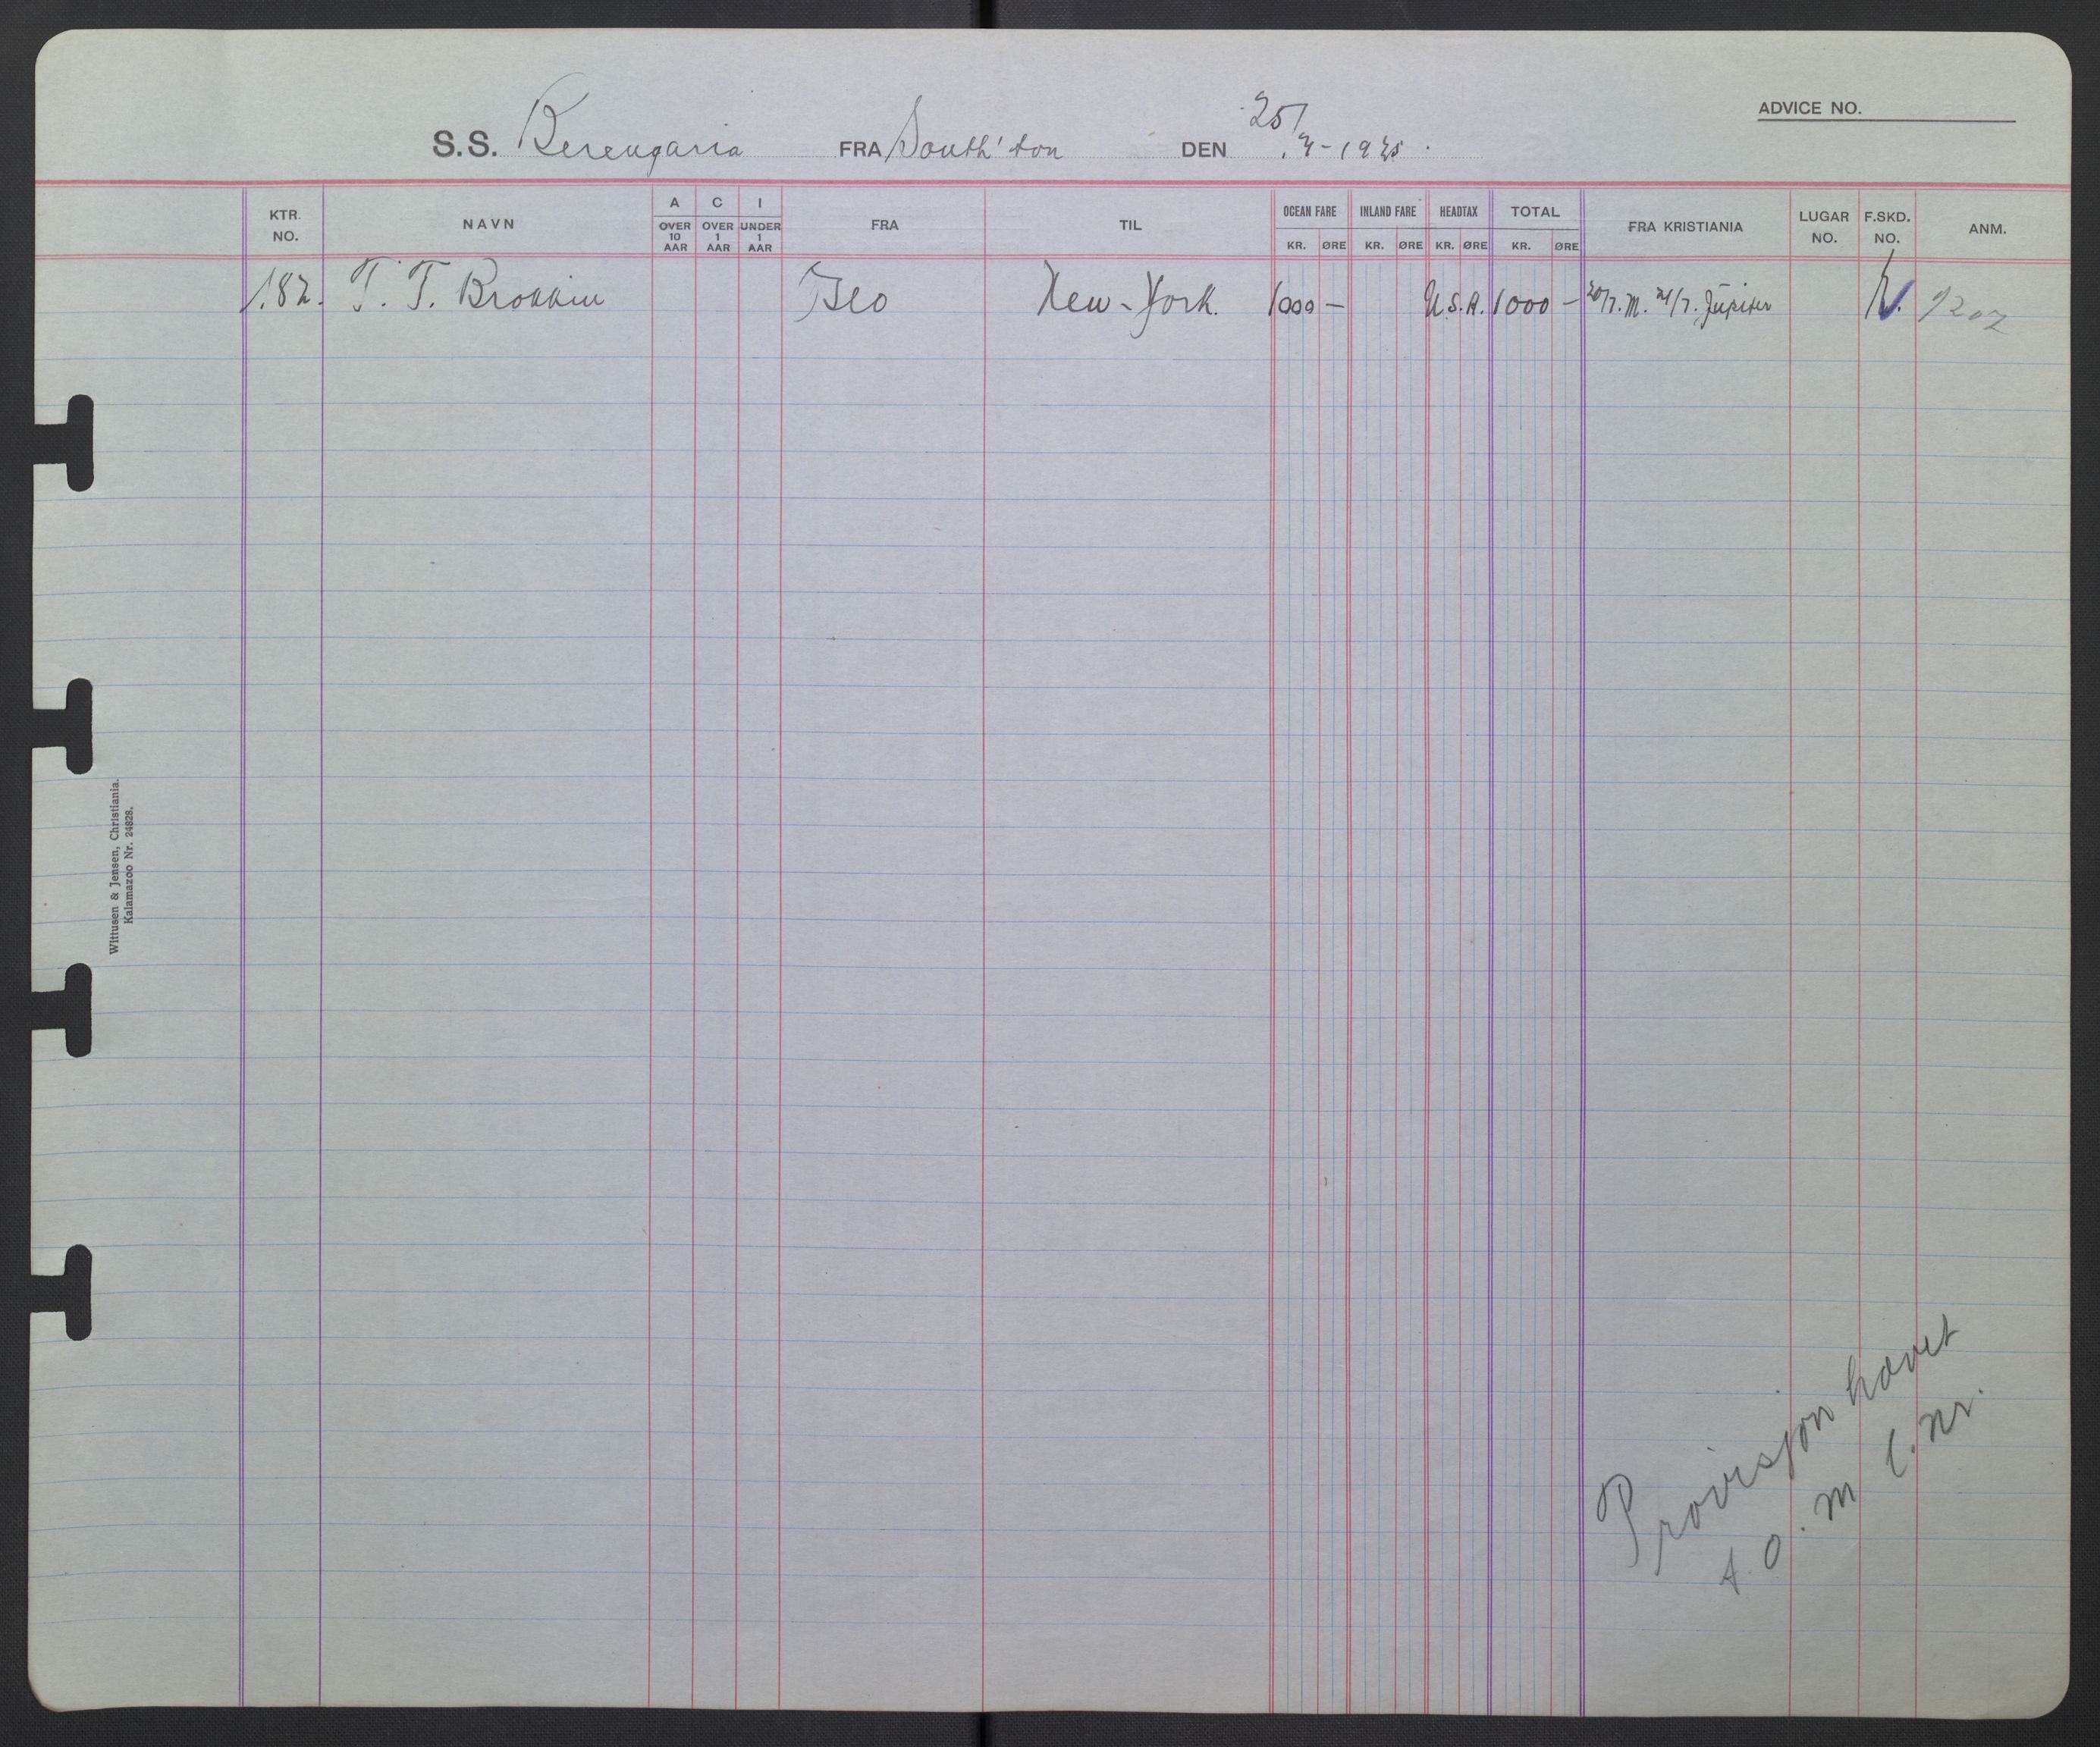 ADVICE NO.
S.S. Berengaria FRA South'ton DEN 25/7-1925.
KTR. NO. NAVN A OVER 10 AAR C OVER 1 AAR I UNDER 1 AAR FRA TIL OCEAN FARE KR. ØRE INLAND FARE KR. ØRE HEADTAX KR. ØRE TOTAL KR. ØRE FRA KRISTIANIA LUGAR NO. F.SKD. NO. ANM.
182. T. T. New-York. 1000 — U.S.A. 1000 — 20/7. M. 21/7. Jupiter 1202
Wittusen & Jensen, Christiania.
Kalamazoo Nr. 24828.
Provisjon hævet
t.o.m l.nr.